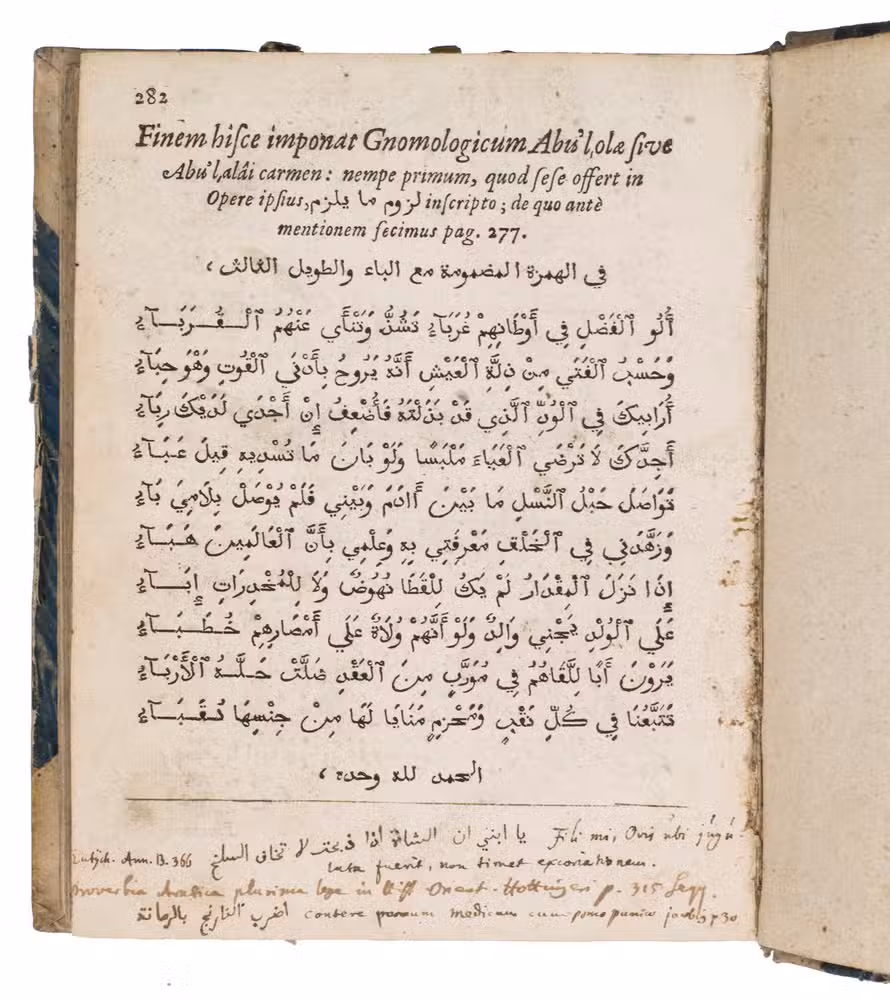 282
Finem hiſce imponat Gnomologicum Abu'l,olæ ſive
Abu'l,alâi carmen: nempe primum, quod ſeſe offert in
Opere ipſius, لزوم ما يلزم inſcripto; de quo antè
mentionem fecimus pag. 277.
في الهمزة المضمومة مع الباء والطويل الثالث،
أُلُو ٱلْفَضْلِ فِي أَوْطَانِهِمْ غُرَبَآءُ تَشُذُّ وَتَنْأَي عَنْهُمُ ٱلْقُرَبَآءُ
وَحَسْبُ ٱلْفَتَي مِنْ ذِلَّةِ ٱلْعَيْشِ أَنَّهُ يَرُوحُ بِأَدْنَي ٱلْقُوتِ وَهْوَ حِبَآءُ
أُرَابِيكَ فِي ٱلْوُدِّ ٱلَّذِي قَدْ بَذَلْتَهُ فَأُضْعِفُ إِنْ أَجْدَي لَدَيْكَ رِبَآءُ
أَجِدَّكَ لَا تَرْضَي ٱلْعَبَاءَ مَلْبَسًا وَلَوْ بَانَ مَا تُسْدِيهِ قِيلَ عَبَآءُ
تَوَاصَلَ حَبْلُ ٱلنَّسْلِ مَا بَيْنَ أَادَمَ وَبَيْنِي فَلَمْ يُوصَلْ بِلَامِيَ بَآءُ
وَزَهَّدَنِي فِي ٱلْخَلْقِ مَعْرِفَتِي بِهِ وَعِلْمِي بِأَنَّ ٱلْعَالَمِينَ هَبَآءُ
إِذَا نَزَلَ ٱلْمِقْدَارُ لَمْ يَكُ لِلْقَطَا نُهُوضٌ وَلَا لِلْمُخْدِرَاتِ إِبَآءُ
عَلَي ٱلْوُلْدِ يَجْنِي وَالِدٌ وَلَوْ أَنَّهُمْ وُلَاةٌ عَلَي أَمْصَارِهِمْ خُطَبَآءُ
يَرَوْنَ أَبًا لَقَّاهُمُ فِي مُوَرَّبٍ مِنَ ٱلْعَقْدِ ضَلَّتْ حَلَّهُ ٱلْأُرَبَآءُ
تَتَبَّعُنَا فِي كُلِّ نَقْبٍ وَمَحْزِمٍ مَنَايَا لَهَا مِنْ جِنْسِهَا نُقَبَآءُ
الحمد لله وحده،
يا ابني ان الشاة اذا ذبحت لا تخاف السلخ Fili mi, Ovis ubi jugu-
Eutych. Ann. B. 366 lata fuerit, non timet excoriationem.
Proverbia Arabica plurima lege in Hottingeri p. 315 seqq.
اضرب النارنج بالرمانة contere pomum medicum cum pomo punico